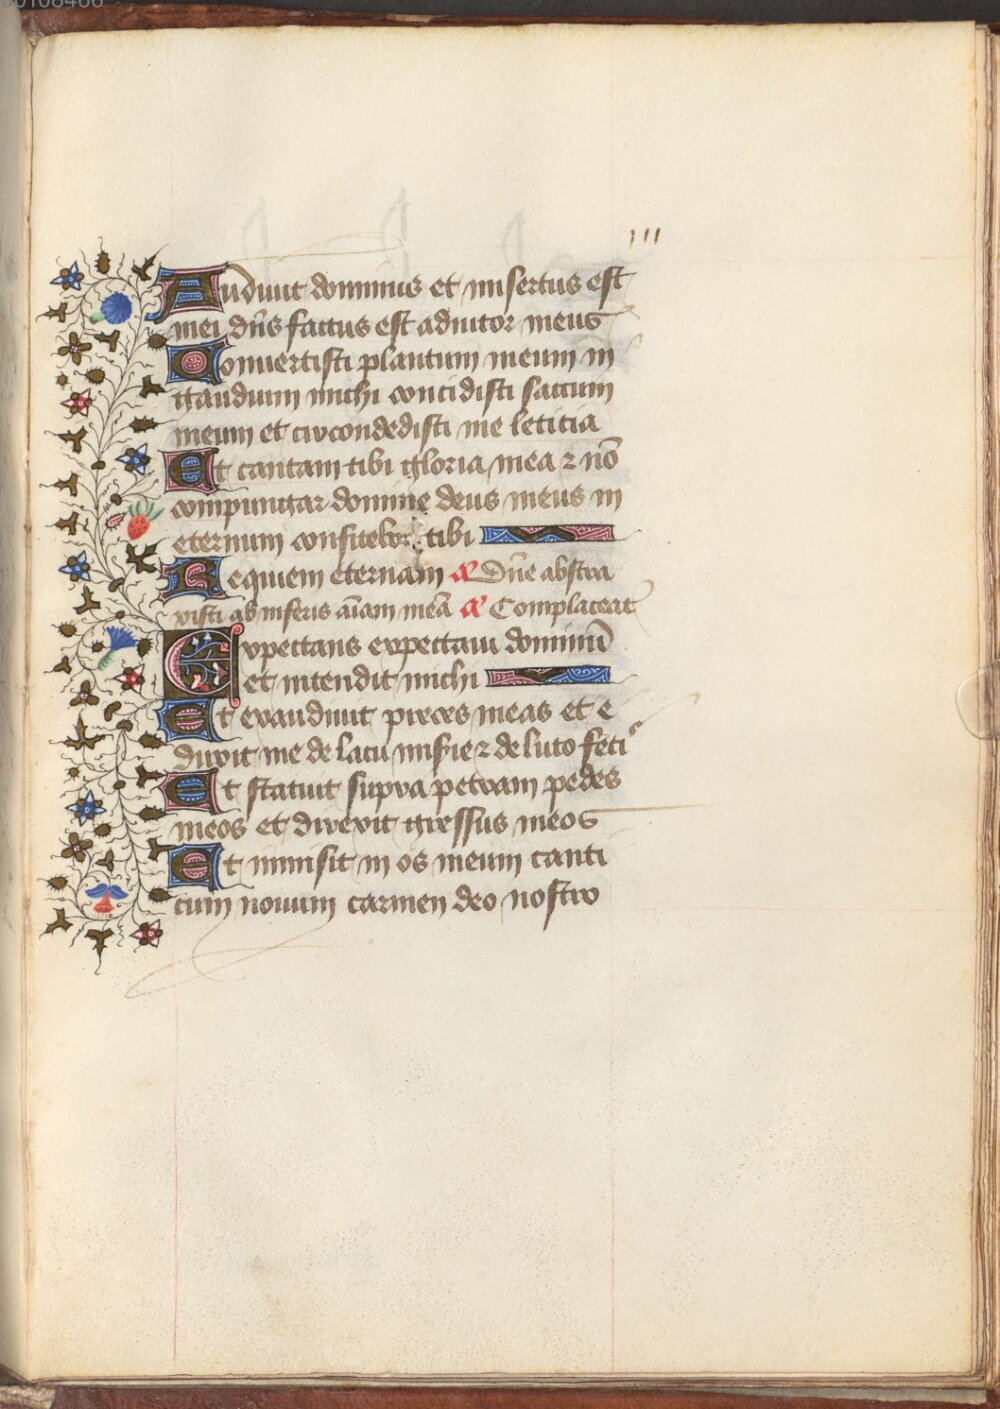 00108466
Audiuit dominus et misertus est
mei dn̄s factus est adiutor meus
Conuertisti planctum meum in
gaudium michi concidisti saccum
meum et circondedisti me leticia
Et cantam tibi gloria mea ⁊ nō
compungar domine deus meus in
eternum confitebor tibi
Requiem eternam a Dn̄e abstra
xisti ab inferis aīam meā a Complaceat
Expectans expectaui dominū
et intendit michi
Et exaudiuit preces meas et e
duxit me de lacu misīe ⁊ de luto feci
Et statuit supra petram pedes
meos et direxit gressus meos
Et immisit in os meum canti
cum nouum carmen deo nostro